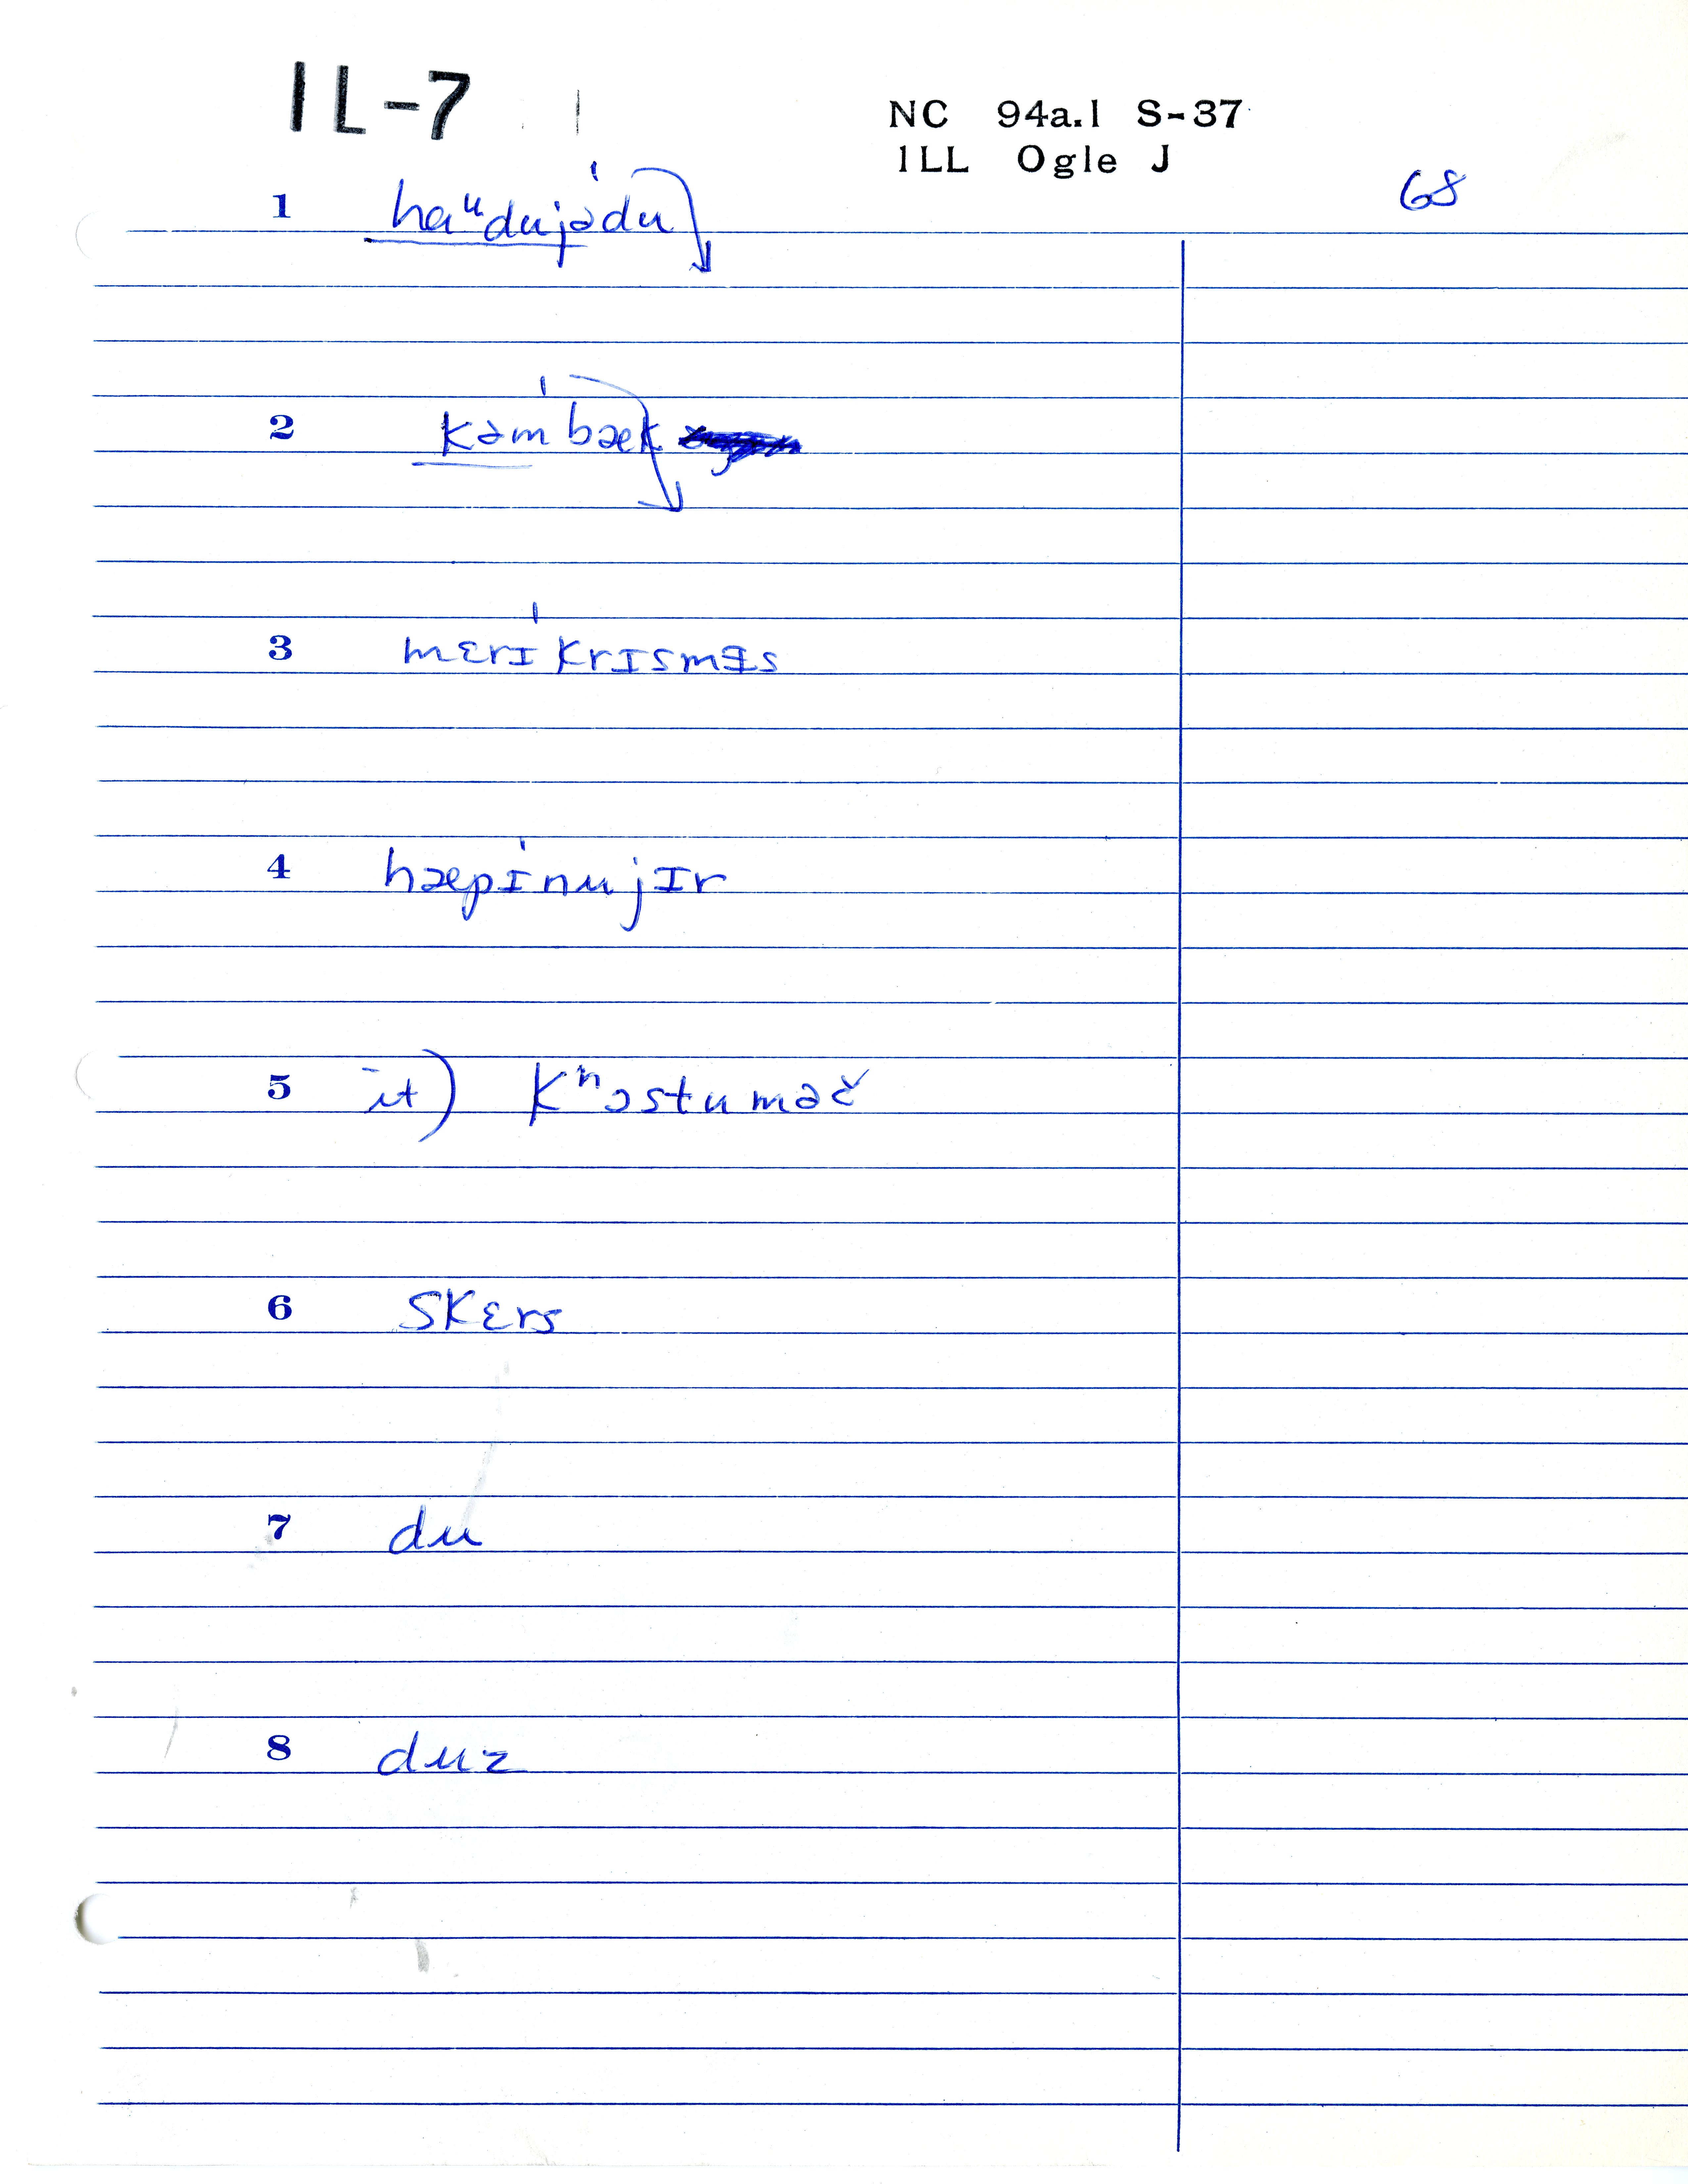 IL-7
NC 94a.1 S-37
ILL Ogle J
68
1 haᵘdujədu
2 kəm bæk
3 mɛrɪ krɪsməs
4 hæpɪ nu jɪr
5 it) kʰɔstuməč
6 skɛrs
7 du
8 duz